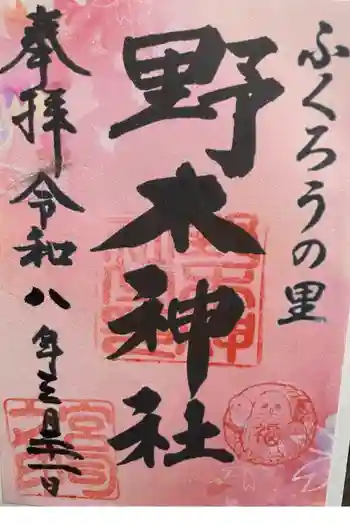 ふくろうの里
野木神社
奉拝 令和八年三月二十一日
福